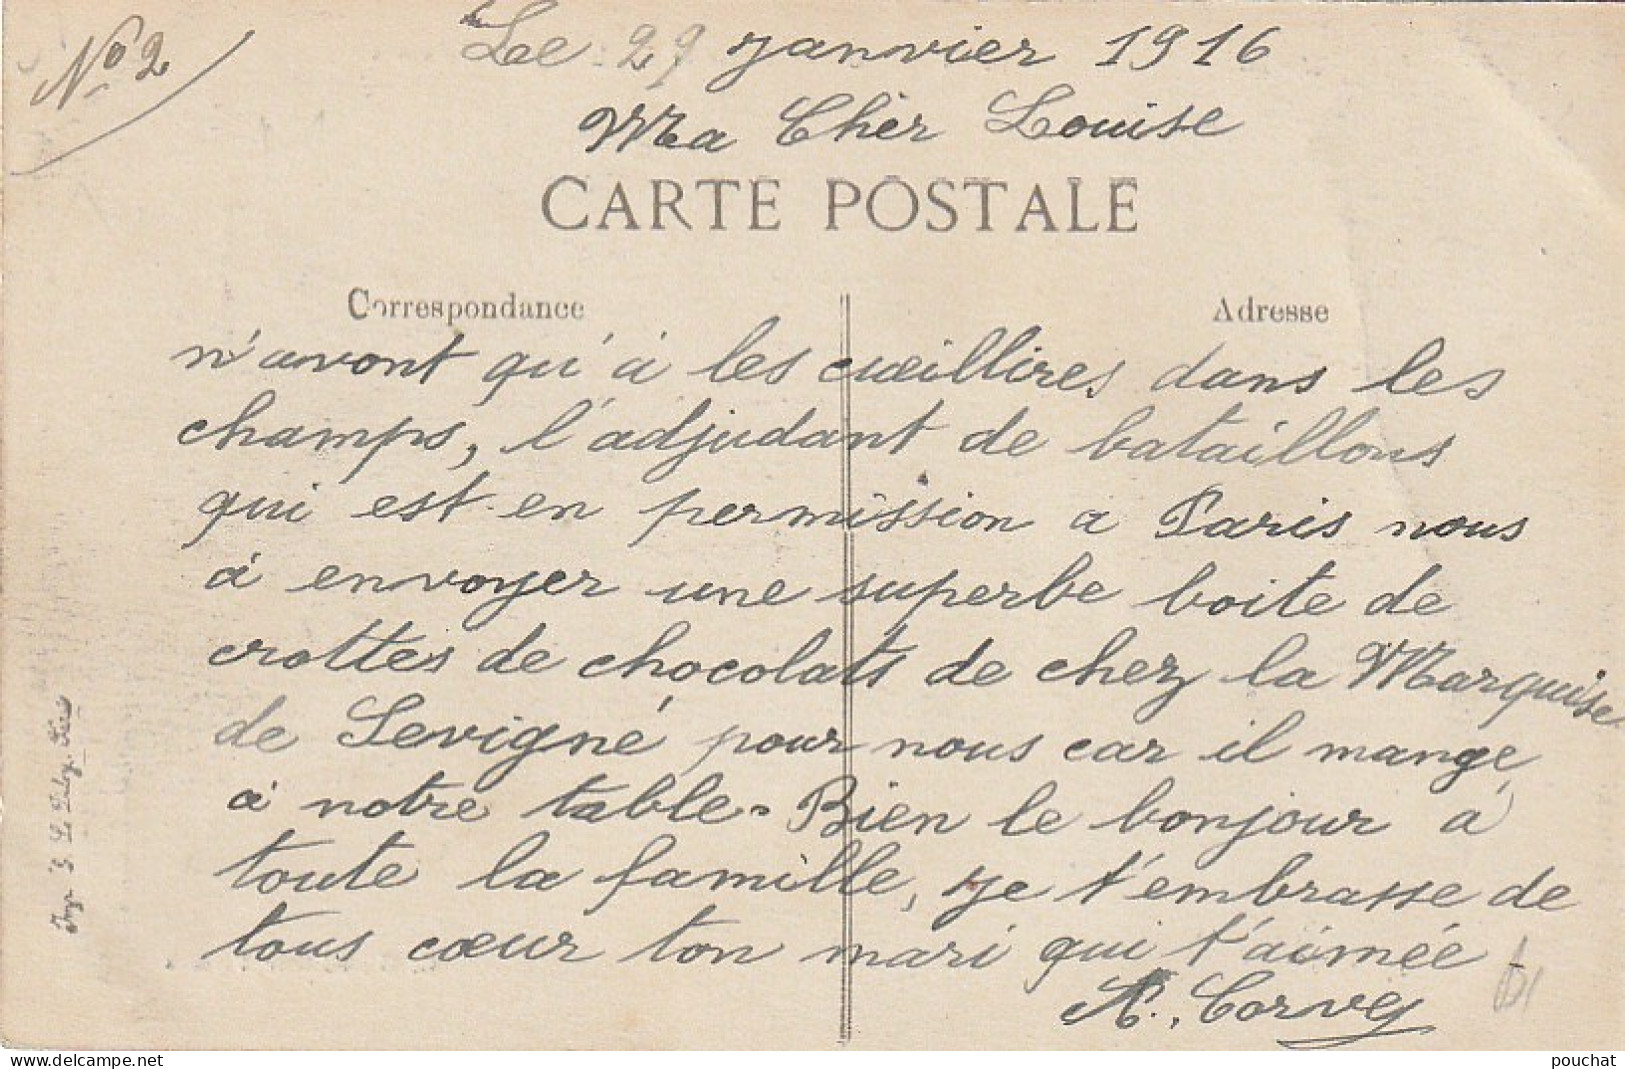 N° 2
Le 27 janvier 1916
Ma Chèr Louise
CARTE POSTALE
Correspondance
Adresse
n'avont qu'à les cueillires dans les
champs, l'adjudant de bataillons
qui est en permission a Paris nous
à envoyer une superbe boite de
crottes de chocolats de chez la Marquise
de Sevigné pour nous car il mange
à notre table - Bien le bonjour à
toute la famille, je t'embrasse de
tous cœur ton mari qui t'aimée
A. Corvey
delcampe.net
pouchat